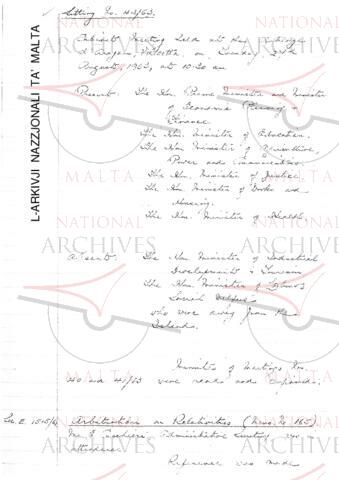 Sitting No. 43/63.
Cabinet Meeting held at the Auberge
d'Aragon, Valletta, on Tuesday,
August, 1963, at 10:30 am
Present: The Hon. Prime Minister and Minister
of Economic Planning &
Finance.
The Hon. Minister of Education.
The Hon. Minister of Agriculture,
Power and Communications
The Hon. Minister of Justice.
The Hon. Minister of Works and
Housing.
The Hon. Minister of Health
Absent: The Hon. Minister of Industrial
Development & Tourism
The Hon. Minister of Labour &
Social Welfare
who were away from the
Islands.
Minutes of Meetings Nos.
40 and 41/63 were read and confirmed.
Arbitration on Relativities (Memo. No. 165)
Administrative Secretary, was
in attendance.
Reference was made
L-ARKIVJI NAZZJONALI TA' MALTA
NATIONAL
ARCHIVES
MALTA